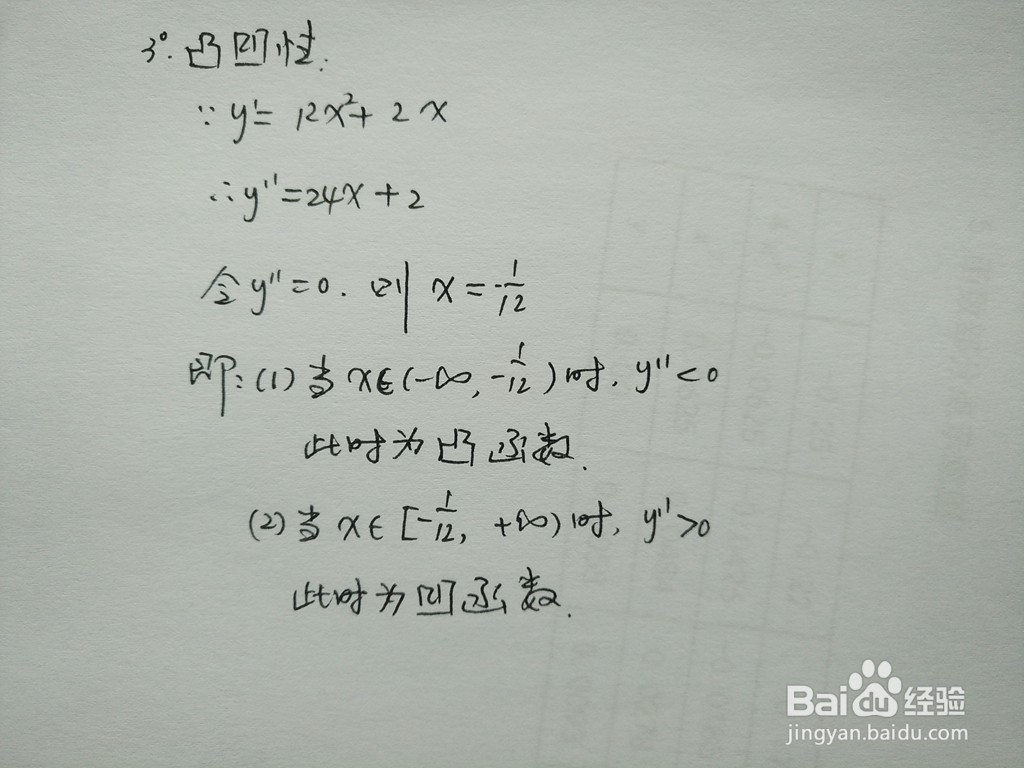 3°. 凸凹性.
∵ y' = 12x²+ 2x
∴ y''=24x+2
令 y''=0. 则 x=-1/12
即:(1)当 x∈(-∞,-1/12)时, y''<0
此时为凸函数.
(2)当 x∈[-1/12, +∞)时, y''>0
此时为凹函数.
Bai du 经验
jingyan.baidu.com